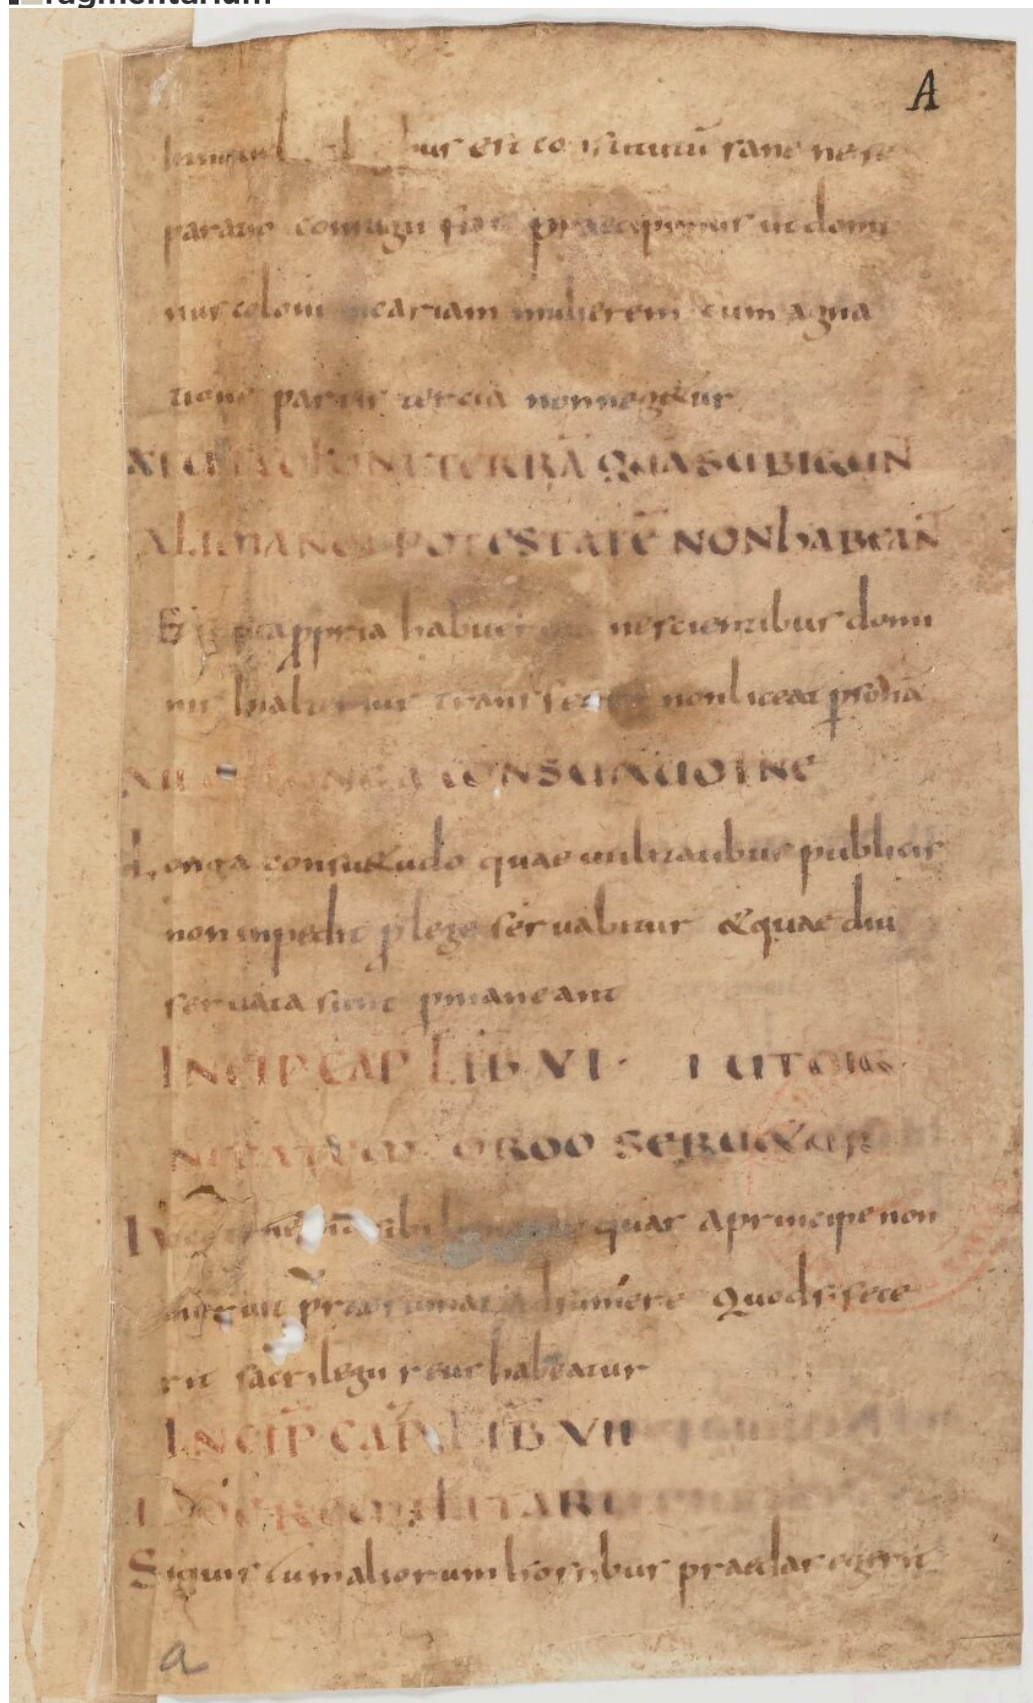 fragmentarium
A
bus est constitutū sane nese
paratio coniugii fiat praecipimus ut domi
nus coloni uicariam mulierem cum agna
tione partis tercia non neg&ur
XI UT COLONI TERRĀ QUA SUBIGUN̄
ALIENANDI POTESTATĒ NON hABEAN̄
& si qua ꝓpria habuerint nescientibus domi
nis
transferre non liceat
XII DE LONGA CONSUAETUDINE
Longa consu&udo quae utilitatibus publicis
non inpedit ꝓ lege seruabitur & quae diu
seruata sunt pmaneant
INCIP CAP LIB VI · I UT
DIGNITATUM ORDO SERU&UR
quas a principe non
meruit praesumat adsumere Quod si fece
rit sacrilegii reus habeatur
INCIP CAP LIB VII
I DE RE MILITARI
Siquis cum aliorum hostibus praedas egerit
a